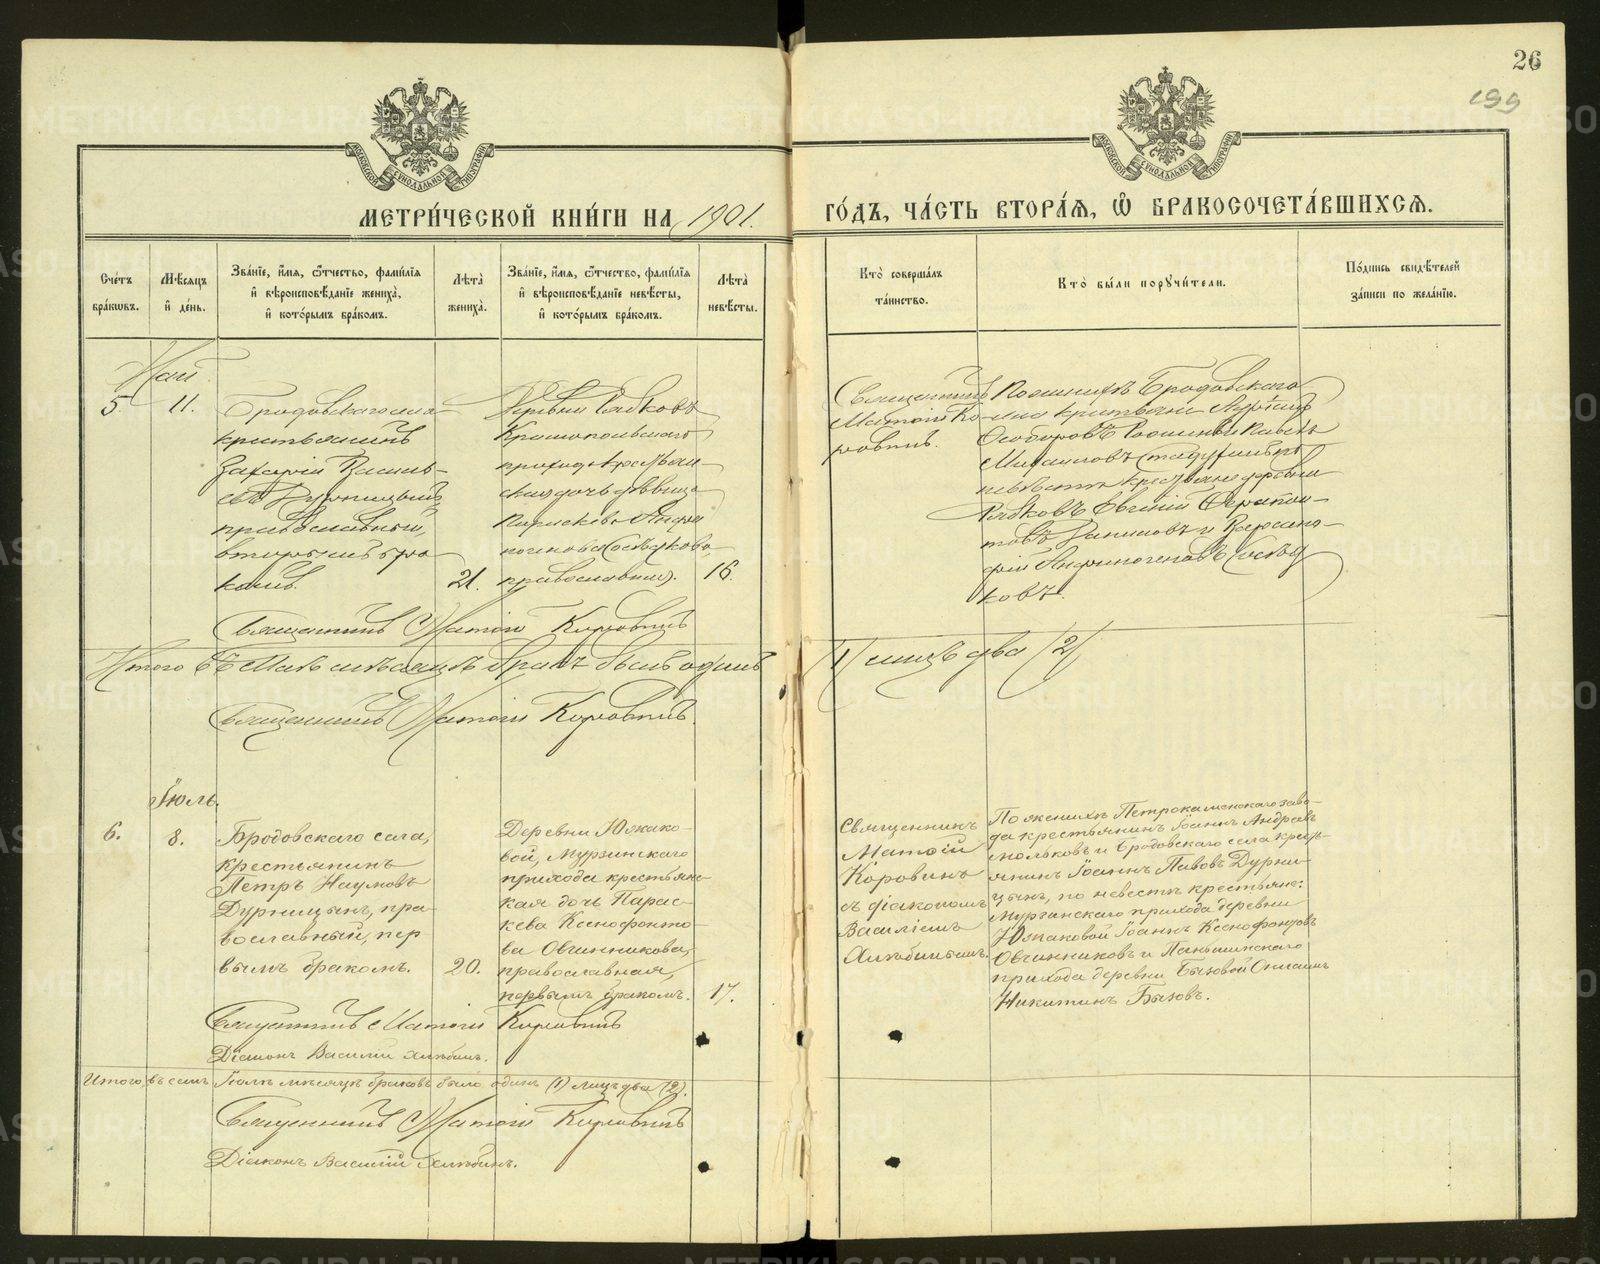 26
199
МОСКОВСКОЙ СѴНОДАЛЬНОЙ ТИПОГРАФІИ
МОСКОВСКОЙ СѴНОДАЛЬНОЙ ТИПОГРАФІИ
МЕТРИ́ЧЕСКОЙ КНИ́ГИ НА 1901.
ГО́ДЪ, ЧА́СТЬ ВТОРА́Ѧ, Ѽ БРАКОСОЧЕТА́ВШИХСѦ.
Сче́тъ бра́кѡвъ.
Мѣ́сѧцъ и҆ де́нь.
Зва́нїе, и҆́мѧ, ѻ҆́тчество, фами́лїѧ и҆ вѣроисповѣ́данїе жениха̀, и҆ кото́рымъ бра́комъ.
Лѣта̀ жениха̀.
Зва́нїе, и҆́мѧ, ѻ҆́тчество, фами́лїѧ и҆ вѣроисповѣ́данїе невѣ́сты, и҆ кото́рымъ бра́комъ.
Лѣта̀ невѣ́сты.
Кто̀ соверша́лъ та́инство.
Кто̀ бы́ли порꙋчи́тели.
По́дпись свидѣ́телей за́писи по жела́нїю.
Май
5.
11.
Бродовскаго села
крестьянинъ
Захарій Василь-
евъ Дурницынъ,
православный,
вторымъ бра-
комъ.
21.
Деревни Рябковъ
Краснопольскаго
прихода крестьян-
ская дочь девица
Параскева Анфи
ногенова Соседкова,
православная.
16.
Священникъ
Матѳій Ко-
ровинъ.
По женихѣ Бродовскаго
села крестьяне
Михаиловъ
невѣстѣ крестьяне деревни
Рябковъ Евгеній Ферапон-
товъ Даниловъ и
Анфиногеновъ Сосѣд
ковъ.
Священникъ Матѳій Коровинъ
Итого въ Маѣ мѣсяцѣ бракъ былъ одинъ
1/ лицъ два /2/
Священникъ Матѳій Коровинъ.
Іюль.
6.
8.
Бродовскаго села,
крестьянинъ
Петръ Наумовъ
Дурницынъ, пра-
вославный, пер
вымъ бракомъ.
20.
Деревни Южако-
вой, Мурзинскаго
прихода крестьянс-
кая дочь Парас-
кева Ксенофонто-
ва Овчинникова,
православная,
первымъ бракомъ.
17.
Священникъ
Матѳій
Коровинъ
съ діакономъ
Василіемъ
Хлѣбинымъ.
По женихѣ Петрокаменскаго заво-
да крестьянинъ Іоаннъ Андреевъ
Мольковъ и Бродовскаго села кресть-
янинъ Іоаннъ Павовъ Дурни
цынъ, по невестѣ крестьяне:
Мурзинскаго прихода деревни
Южаковой Іоаннъ Ксенофонтовъ
Овчинниковъ и Паньшинскаго
прихода деревни Бызовой
Никитинъ Бызовъ.
Священникъ Матѳій Коровинъ
Діаконъ Василій Хлѣбинъ.
Итого въ семъ Іюлѣ мѣсяцѣ браковъ было одинъ (1) лицъ два (2).
Священникъ Матѳій Коровинъ
Діаконъ Василій Хлѣбинъ.
METRIKI.GASO-URAL.RU